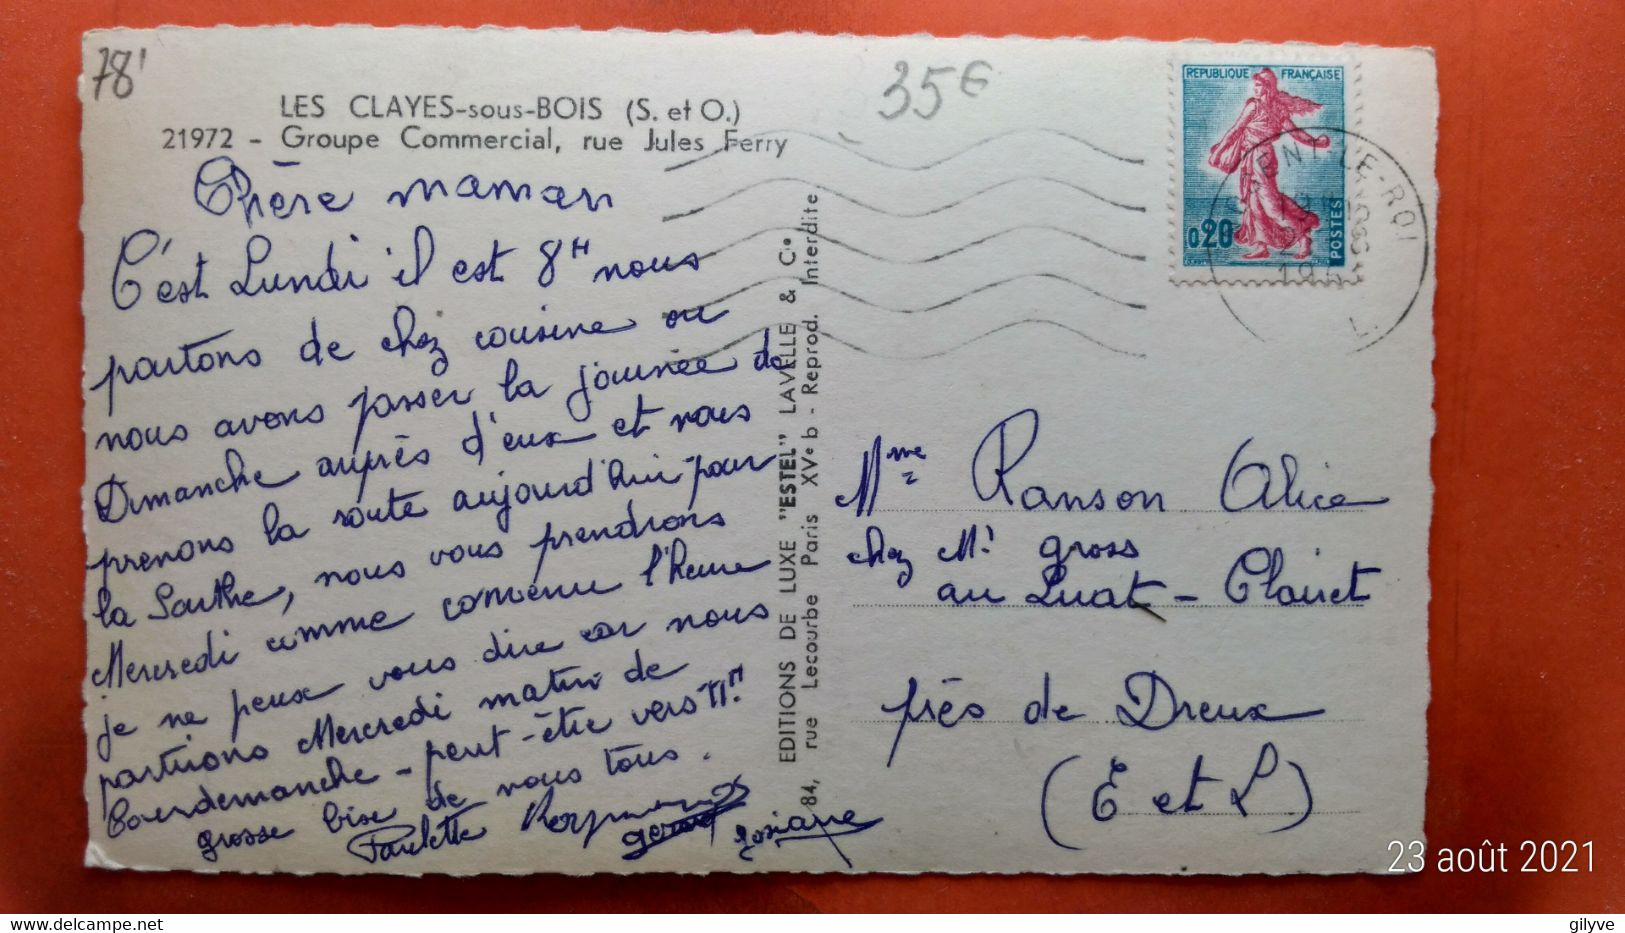 78'
35€
LES CLAYES-sous-BOIS (S. et O.)
21972 - Groupe Commercial, rue Jules Ferry
Chère maman
C'est Lundi il est 8H nous
partons de chez cousine ou
nous avons passer la journée de
Dimanche auprès d'eux et nous
prenons la route aujourd'hui pour
la Sarthe, nous vous prendrons
Mercredi comme convenu l'heure
je ne peux vous dire car nous
partirons Mercredi matin de
Courdemanche - peut-être vers 11H.
grosse bise de nous tous.
Paulette Raymond gerard Josiane
EDITIONS DE LUXE "ESTEL" LAVELLE & Cie
84, rue Lecourbe Paris XVe b - Reprod. Interdite
REPUBLIQUE FRANÇAISE
0,20
POSTES
NT-LE-ROI
Mme Ranson Alice
chez Mr gross
au Luat - Clairet
près de Dreux
(E et L)
23 août 2021
delcampe.net
gilyve